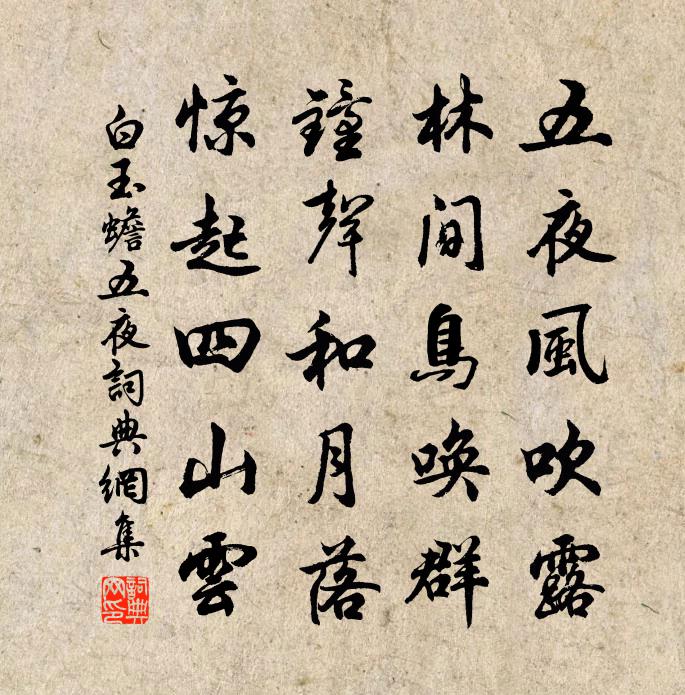 五夜風吹露
林間鳥喚群
鐘聲和月落
惊起四山雲
白玉蟾五夜詞典網集
詞典網印